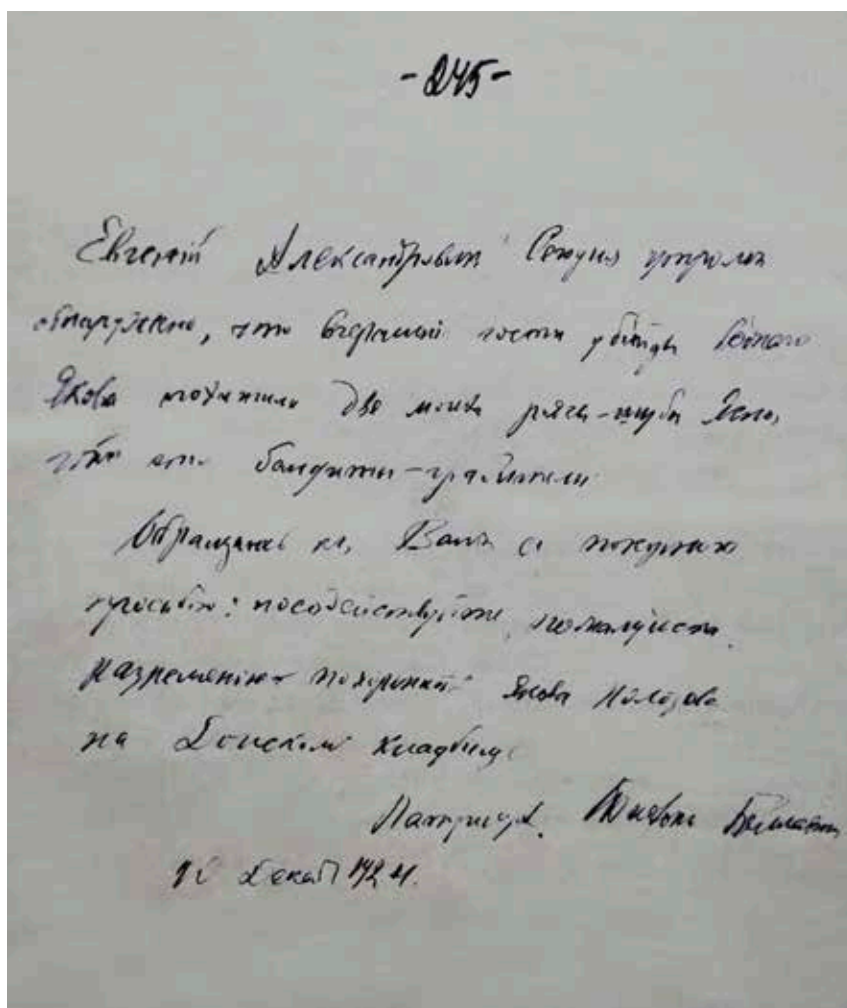 - 245 -
Евгеній Александровичъ Сегодня утромъ
обнаружено, что вчерашній гости убійцы бѣднаго
Якова похитили две моихъ рясы-шубы Ясно,
что это бандиты-грабители
Обращаюсь къ Вамъ съ покорною
просьбою: посодействуйте, пожалуйста,
разрешенію похоронить Якова Полозова
на Донскомъ кладбище
Патріархъ
10 Декаб 1924.